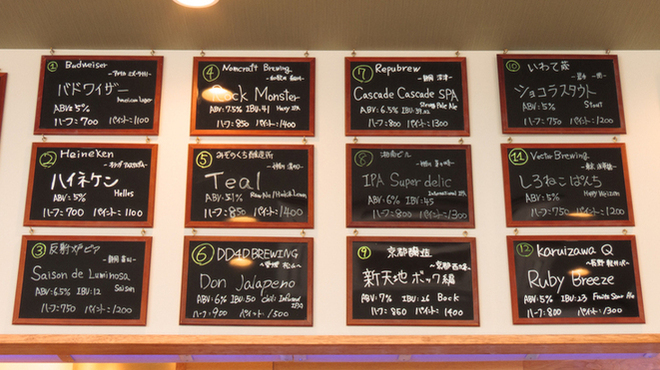 ① Budweiser
バドワイザー
American Lager
ABV:5%
ハーフ=700 パイント=1100
② Heineken
ハイネケン
Helles
ABV:5%
ハーフ=700 パイント=1100
③ 反射炉ビヤ
Saison de Luminosa
Saison
ABV:6.5% IBU:12
ハーフ=750 パイント=1200
④ Nomcraft Brewing
Monster
ABV:7.5% IBU:41 Hazy IPA
ハーフ=850 パイント=1400
⑤
Teal
ABV:5.1%
ハーフ=850 パイント=1400
⑥ DD4D BREWING
~愛媛 松山~
Don Jalapeno
ABV:6% IBU:50 Chili Infused
ハーフ=900 パイント=1500
⑦ Repubrew
~静岡 沼津~
Cascade Cascade SPA
Strong Pale Ale
ABV:6.5% IBU:39.02
ハーフ=800 パイント=1300
⑧ 湘南ビール
IPA Super delic
International IPA
ABV:6% IBU:45
ハーフ=800 パイント=1300
⑨ 京都醸造
~京都 西九条~
新天地 ボック編
ABV:7% IBU:26 Bock
ハーフ=850 パイント=1400
⑩ いわて蔵
~岩手 一関~
ショコラスタウト
ABV:5% Stout
ハーフ=800 パイント=1200
⑪ Vector Brewing
しろねこぱんち
ABV:5% Hoppy Weizen
ハーフ=750 パイント=1200
⑫ Karuizawa Q
~長野 軽井沢~
Ruby Breeze
ABV:5% IBU:23 Fruits Sour Ale
ハーフ=800 パイント=1300